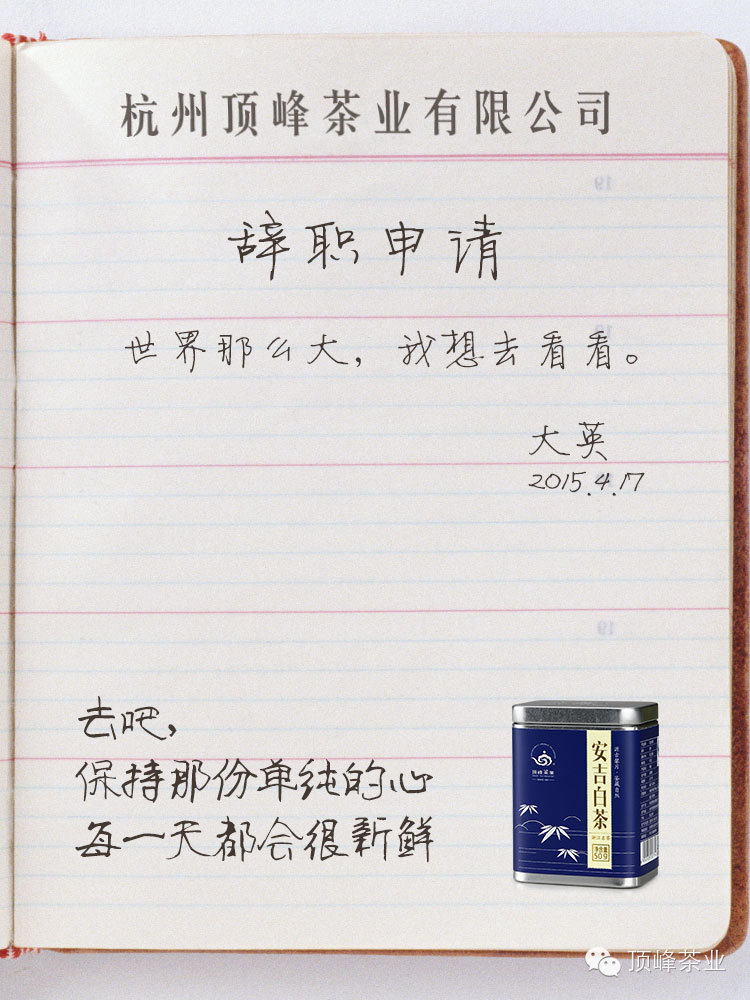 杭州顶峰茶业有限公司
辞职申请
世界那么大，我想去看看。
大英
2015.4.17
去吧，
保持那份单纯的心
每一天都会很新鲜
顶峰茶业
安吉白茶
浙江名茶
净含量
50g
19
19
顶峰茶业